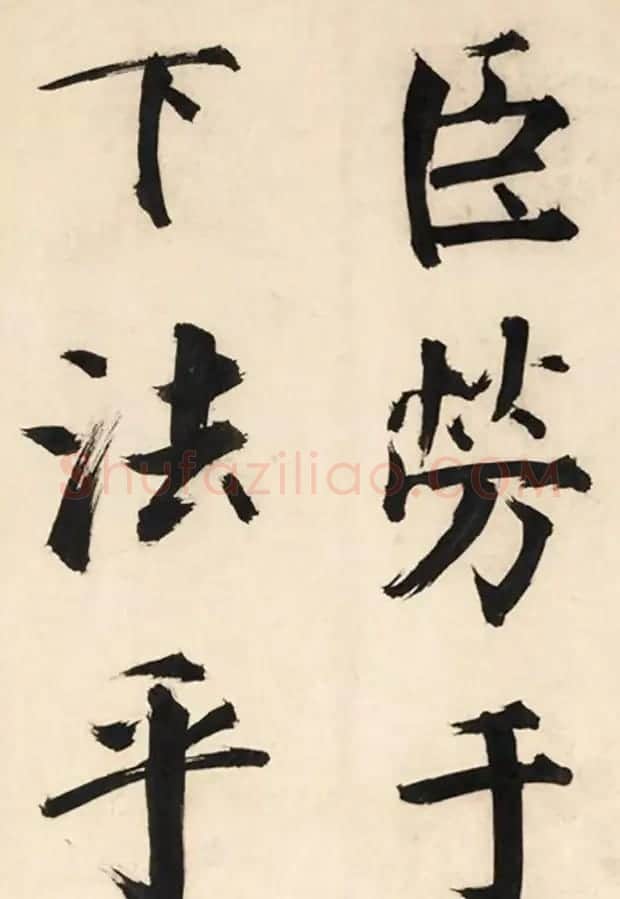 臣劳于
下法乎
Shufaziliao.COM